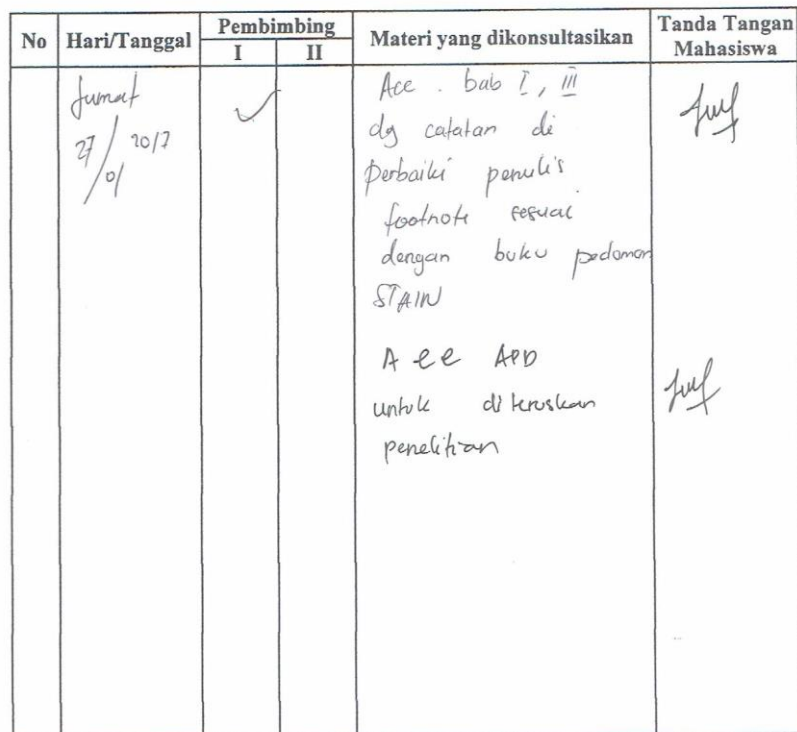 No Hari/Tanggal Pembimbing Materi yang dikonsultasikan Tanda Tangan Mahasiswa
I II
Jumat Acc . bab I, III
27/01 2017 dg catatan di
perbaiki penulis
footnote sesuai
dengan buku pedoman
STAIN
Acc APD
untuk diteruskan
penelitian